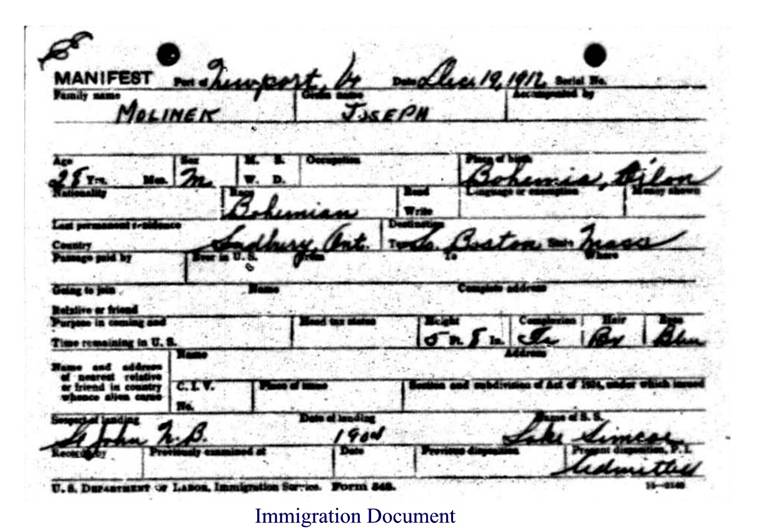 MANIFEST Port of Newport, Vt Date Dec. 19, 1912 Serial No.
Family name Given name Accompanied by
MOLINEK JOSEPH
Age Sex M. S. Occupation Place of birth
28 Yrs. Mos. M W. D. Bohemia,
Nationality Race Read Language or exemption Money shown
Bohemian Write
Last permanent residence Destination
Country Sudbury, Ont. Town So. Boston State Mass
Passage paid by Ever in U. S. From To Where
Going to join Name Complete address
Relative or friend
Purpose in coming and Head tax status Height Complexion Hair Eyes
Time remaining in U. S. 5 Ft. 8 In. Fr Br Blue
Name Address
Name and address
of nearest relative
or friend in country
whence alien came
C. I. V. Place of issue Section and subdivision of Act of 1924, under which issued
No.
Seaport of landing Date of landing Name of S. S.
St John N.B. Lake Simcoe
Record by Previously examined at Date Previous disposition Present disposition, P. I.
Admitted
U. S. DEPARTMENT OF LABOR, Immigration Service. Form 548.
Immigration Document